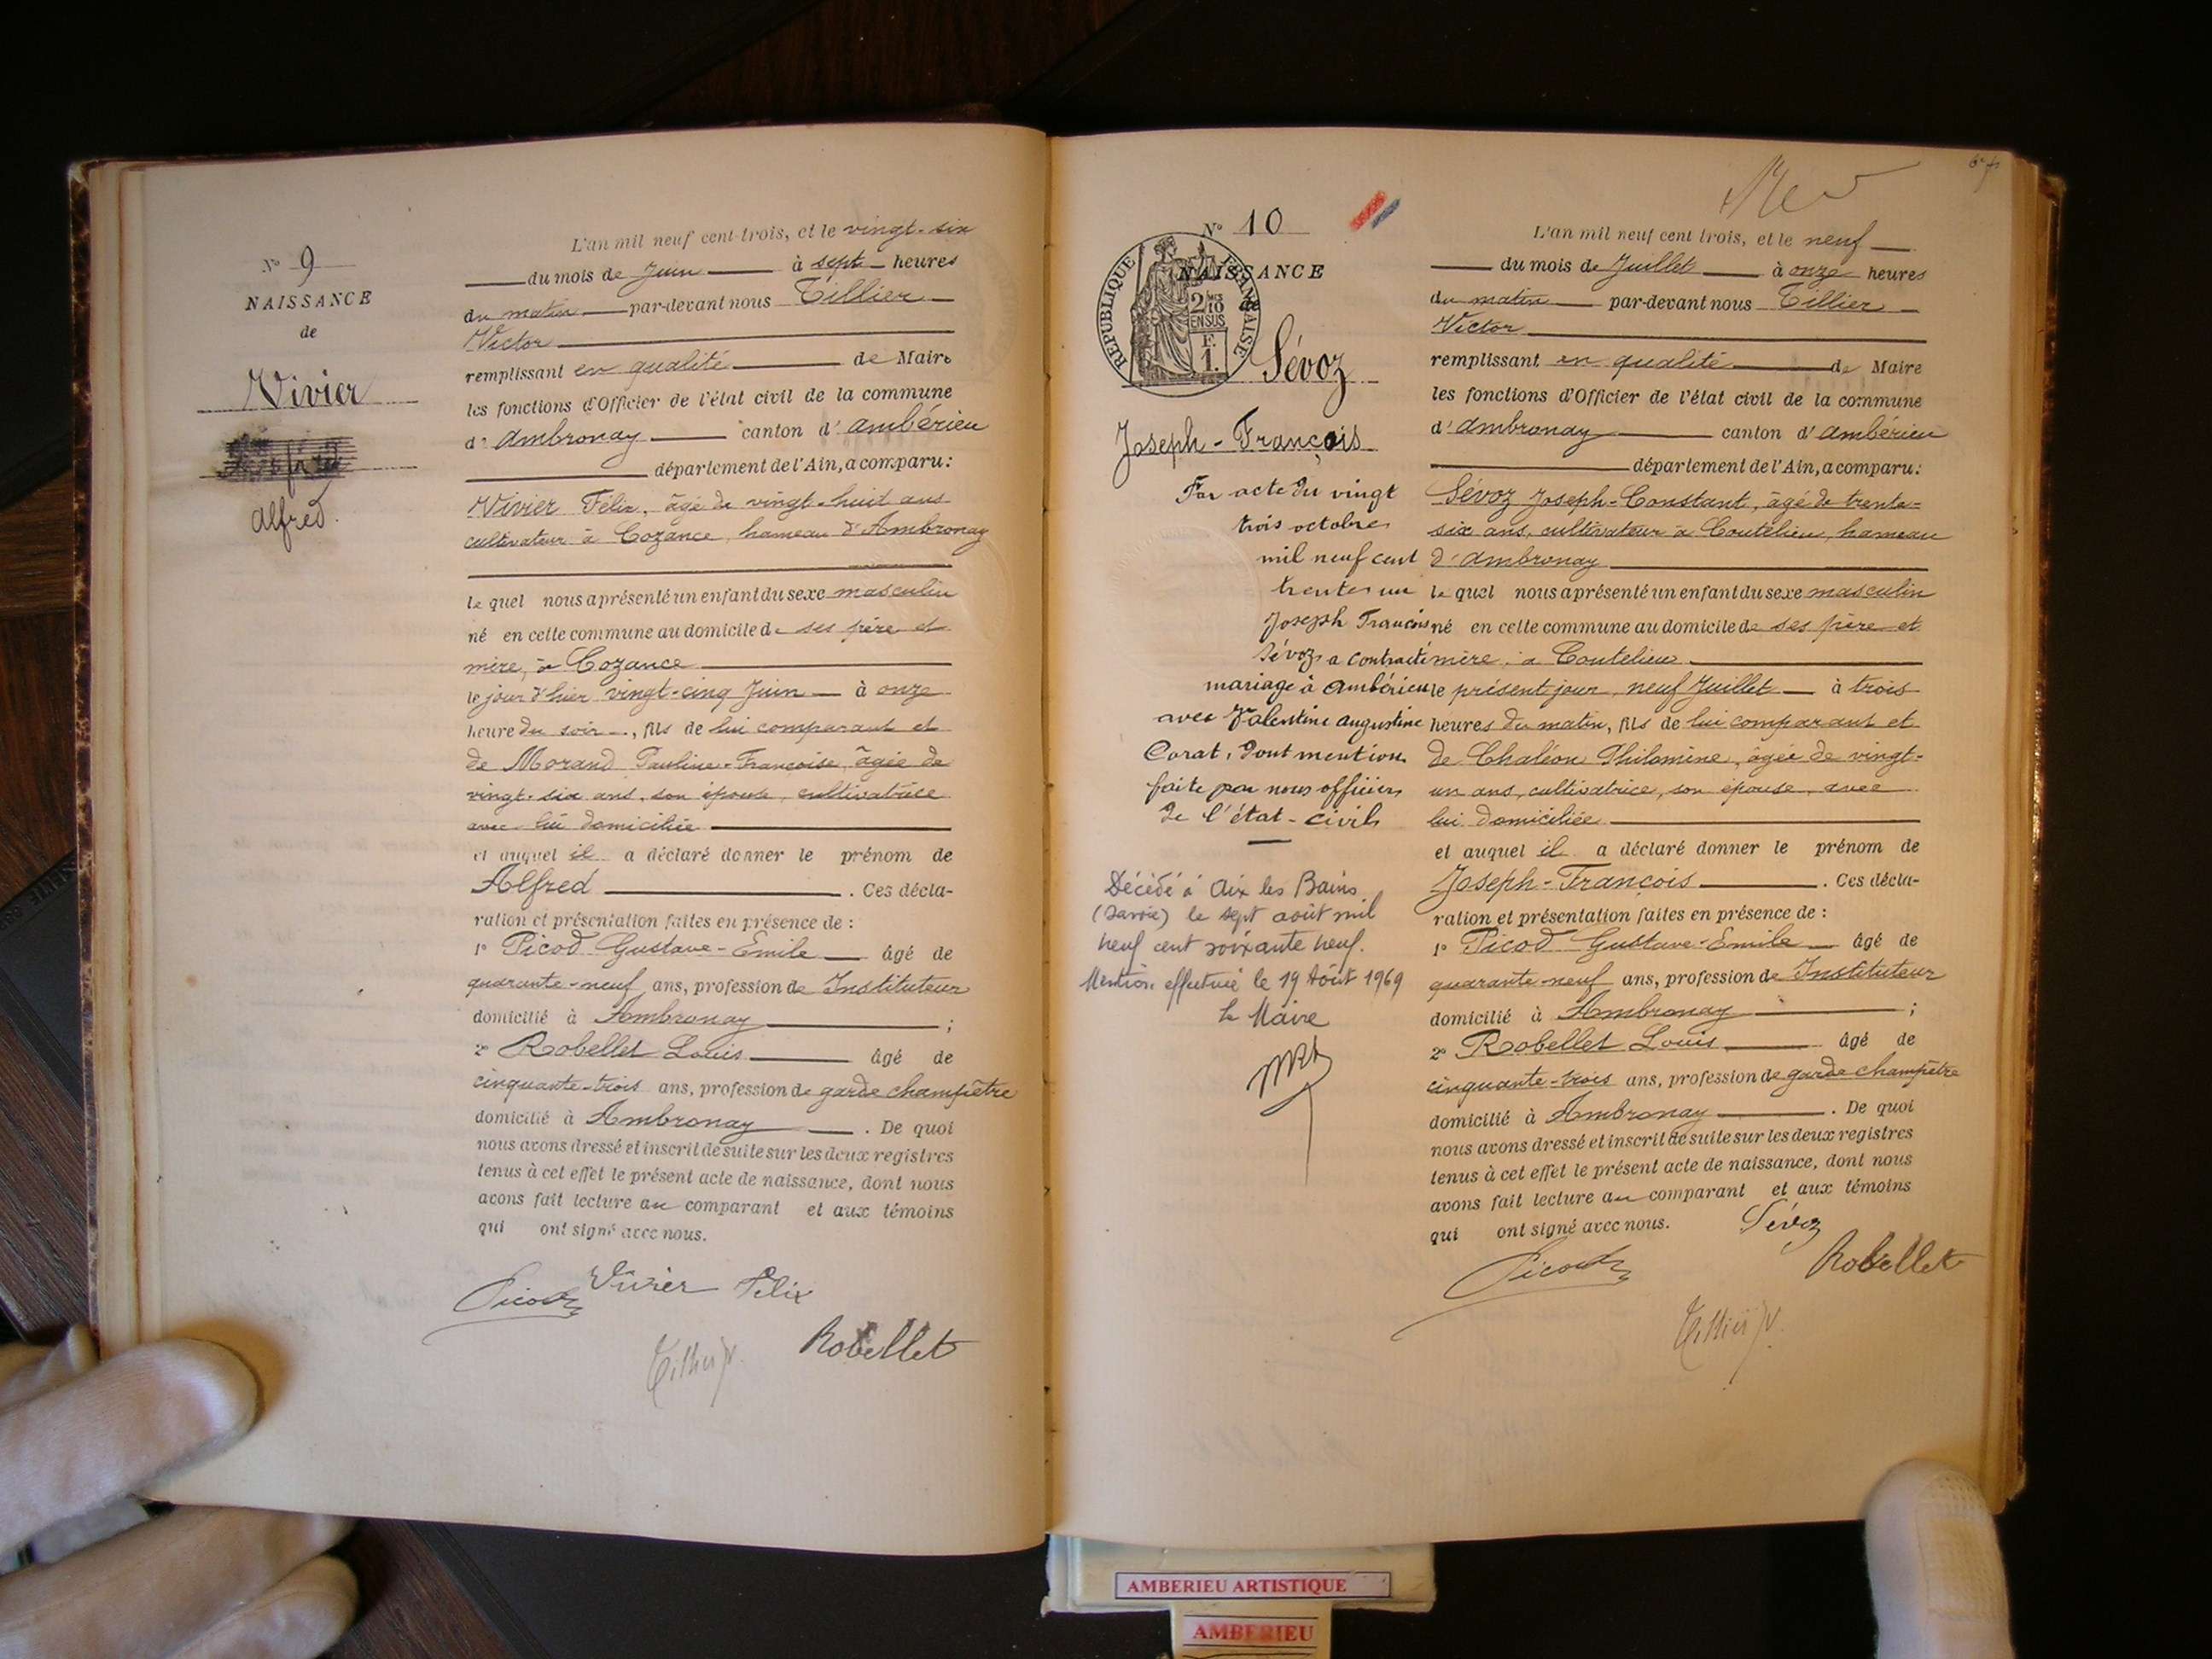 N° 9
NAISSANCE
de
Vivier
Alfred.
L'an mil neuf cent trois, et le vingt-six
du mois de Juin à sept heures
du matin par-devant nous Tillier
Victor
remplissant en qualité de Maire
les fonctions d'Officier de l'état civil de la commune
d' Ambronay canton d' Ambérieu
département de l'Ain, a comparu:
Vivier Félix, âgé de vingt-huit ans
cultivateur à Cozance, hameau d'Ambronay
le quel nous a présenté un enfant du sexe masculin
né en cette commune au domicile de ses père et
mère, à Cozance
le jour d'hier vingt-cinq Juin à onze
heure du soir, fils de lui comparant et
de Morand Pauline-Françoise, âgée de
vingt-six ans, son épouse, cultivatrice
avec lui domiciliée
et auquel il a déclaré donner le prénom de
Alfred. Ces décla-
ration et présentation faites en présence de :
1° Picod Gustave-Emile âgé de
quarante-neuf ans, profession de Instituteur
domicilié à Ambronay ;
2° Robellet Louis âgé de
cinquante-trois ans, profession de garde champêtre
domicilié à Ambronay. De quoi
nous avons dressé et inscrit de suite sur les deux registres
tenus à cet effet le présent acte de naissance, dont nous
avons fait lecture au comparant et aux témoins
qui ont signé avec nous.
Vivier Félix
Picod
Robellet
Tillier V.
N° 10
NAISSANCE
de
RÉPUBLIQUE FRANÇAISE
2/10
EN SUS
F.
1.
Sévoz
Joseph-François
Par acte du vingt
trois octobre
mil neuf cent
trente un
Joseph François
Sévoz a contracté
mariage à Ambérieu
avec Valentine Augustine
Corat, dont mention
faite par nous officier
de l'état-civil
Décédé à Aix les Bains
(Savoie) le sept août mil
neuf cent soixante neuf.
Mention effectuée le 19 Août 1969
Le Maire
L'an mil neuf cent trois, et le neuf
du mois de Juillet à onze heures
du matin par-devant nous Tillier
Victor
remplissant en qualité de Maire
les fonctions d'Officier de l'état civil de la commune
d' Ambronay canton d' Ambérieu
département de l'Ain, a comparu:
Sévoz Joseph-Constant, âgé de trente-
six ans, cultivateur à Coutelieu, hameau
d'Ambronay
le quel nous a présenté un enfant du sexe masculin
né en cette commune au domicile de ses père et
mère, à Coutelieu
le présent jour, neuf Juillet à trois
heures du matin, fils de lui comparant et
de Chaléon Philomène, âgée de vingt-
un ans, cultivatrice, son épouse, avec
lui domiciliée
et auquel il a déclaré donner le prénom de
Joseph-François. Ces décla-
ration et présentation faites en présence de :
1° Picod Gustave-Emile âgé de
quarante-neuf ans, profession de Instituteur
domicilié à Ambronay ;
2° Robellet Louis âgé de
cinquante-trois ans, profession de garde champêtre
domicilié à Ambronay. De quoi
nous avons dressé et inscrit de suite sur les deux registres
tenus à cet effet le présent acte de naissance, dont nous
avons fait lecture au comparant et aux témoins
qui ont signé avec nous. Sévoz
Picod
Robellet
Tillier V.
AMBERIEU ARTISTIQUE
AMBERIEU